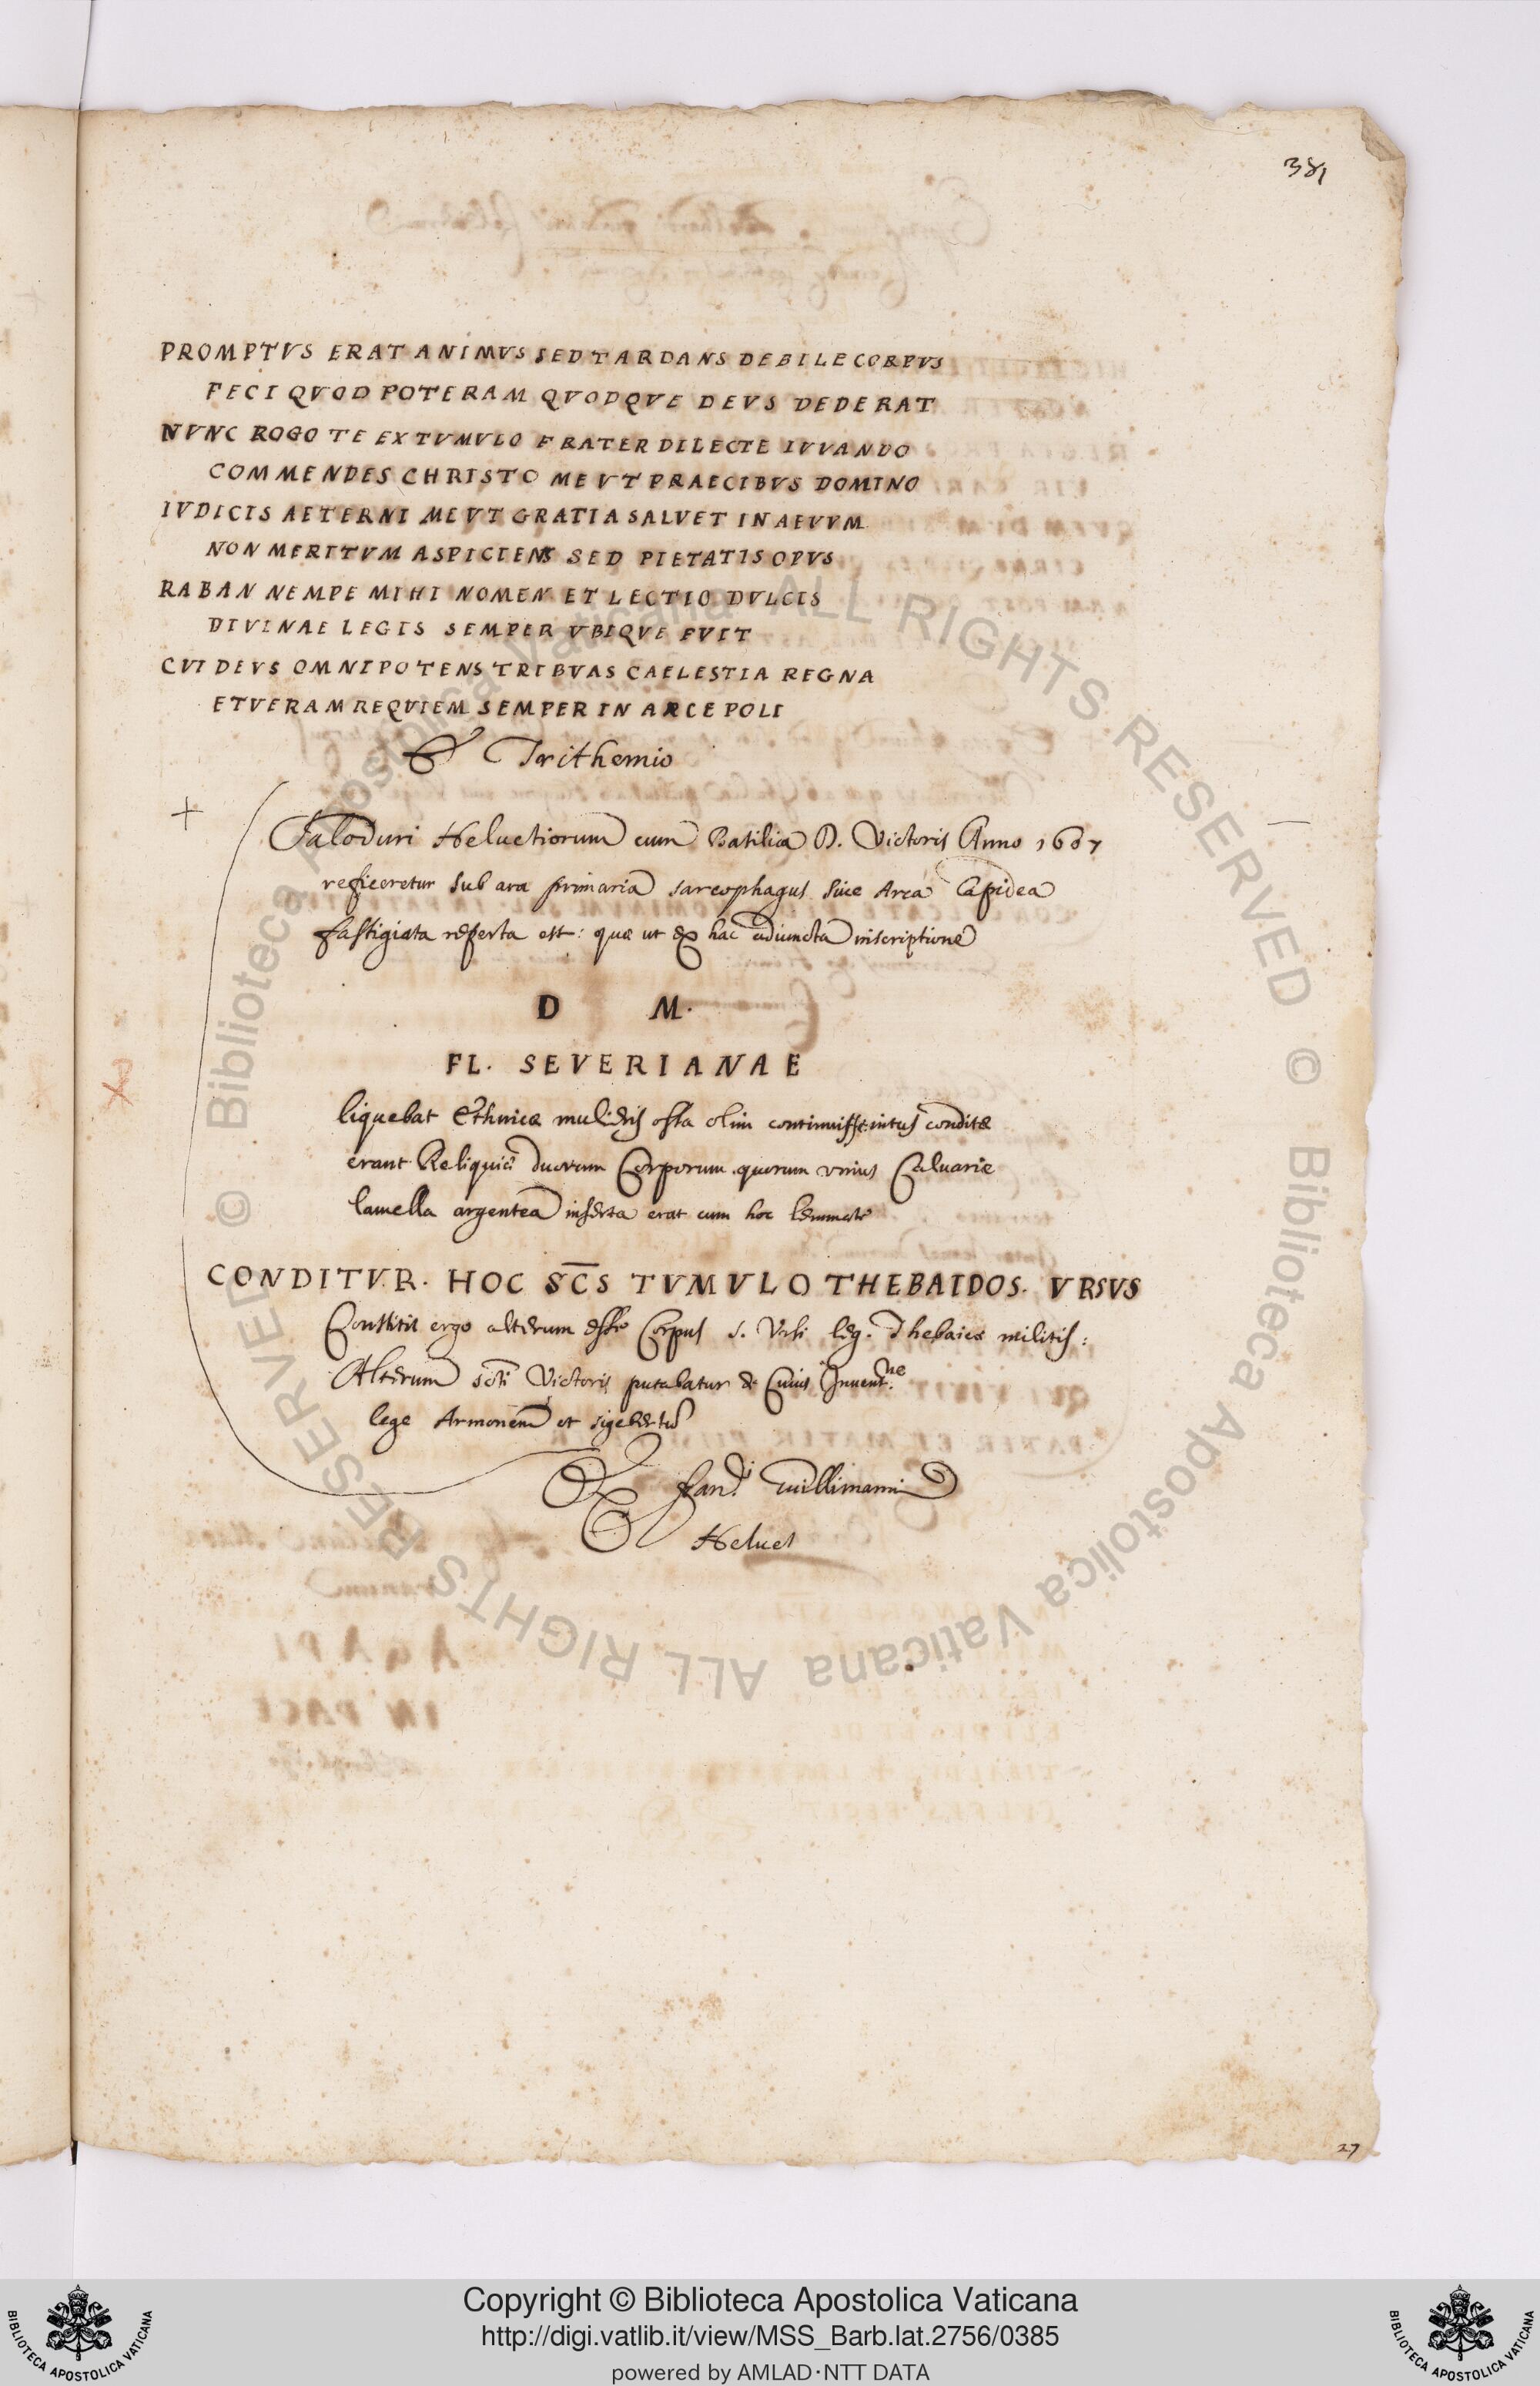 381
PROMPTVS ERAT ANIMVS SED TARDANS DEBILE CORPVS
FECI QVOD POTERAM QVODQVE DEVS DEDERAT
NVNC ROGO TE EX TVMVLO FRATER DILECTE IVVANDO
COMMENDES CHRISTO ME VT PRAECIBVS DOMINO
IVDICIS AETERNI ME VT GRATIA SALVET IN AEVVM
NON MERITVM ASPICIENS SED PIETATIS OPVS
RABAN NEMPE MIHI NOMEN ET LECTIO DVLCIS
DIVINAE LEGIS SEMPER VBIQVE FVIT
CVI DEVS OMNIPOTENS TRIBVAS CAELESTIA REGNA
ET VERAM REQVIEM SEMPER IN ARCE POLI
Trithemio
+
Saloduri Heluetiorum cum Basilica D. Victoris Anno 1607
reficeretur sub ara primaria sarcophagus siue Arca Lapidea
fastigiata referta est: quae ut ex hac adiuncta inscriptione
D M.
FL. SEVERIANAE
liquebat Ethnicae mulieris ossa olim continuisse intus conditae
erant Reliquiae duorum Corporum quorum vnius Caluariae
lamella argentea inserta erat cum hoc lemmate
CONDITVR. HOC SCS TVMVLO THEBAIDOS. VRSVS
Constitit ergo alterum esse Corpus S. Vrsi leg. Thebaicae militis:
Alterum scti Victoris putabatur de Cuius Inuent.ne
lege Armonem et sigebertum
Guillimanni
Heluet
27
© Biblioteca Apostolica Vaticana ALL RIGHTS RESERVED
© Biblioteca Apostolica Vaticana ALL RIGHTS RESERVED
Copyright © Biblioteca Apostolica Vaticana
http://digi.vatlib.it/view/MSS_Barb.lat.2756/0385
powered by AMLAD·NTT DATA
BIBLIOTECA APOSTOLICA VATICANA
BIBLIOTECA APOSTOLICA VATICANA